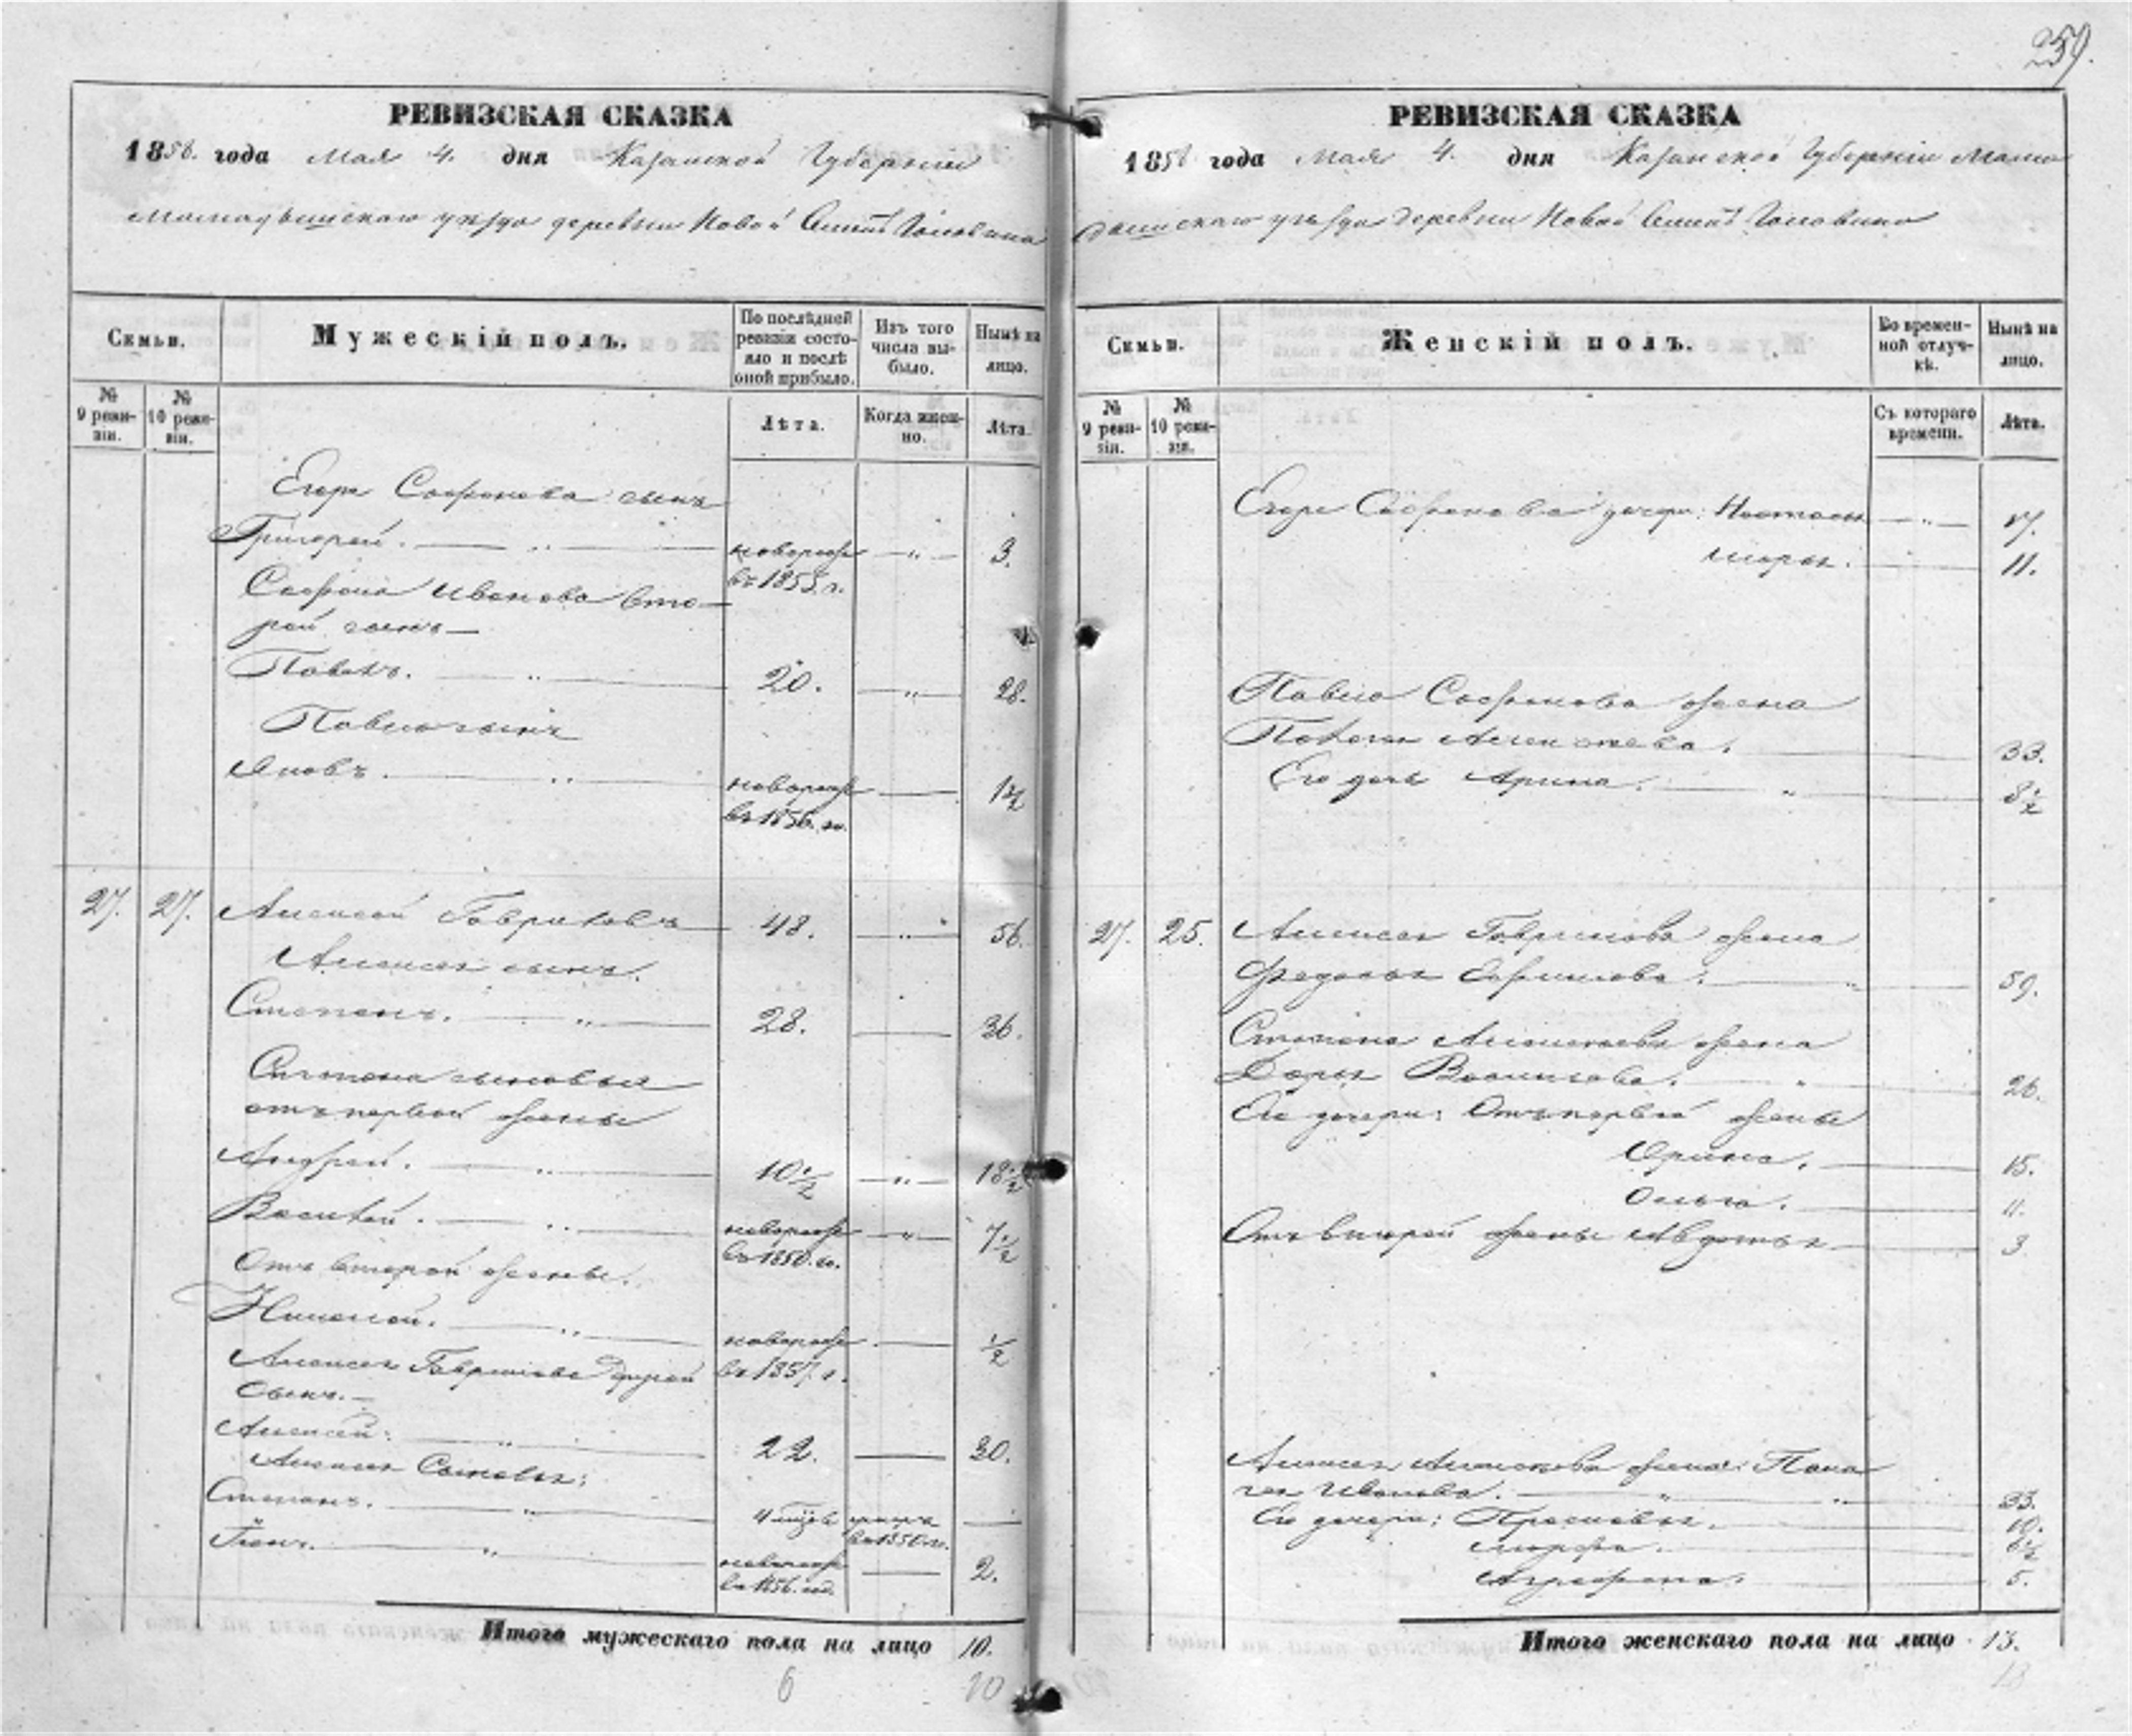 259.
РЕВИЗСКАЯ СКАЗКА
1858. года Мая 4. дня Казанской Губернии
Мамадышскаго уѣзда деревни Новой
Семьи.
Мужескій полъ.
По послѣдней ревизіи состояло и послѣ оной прибыло.
Изъ того числа выбыло.
Нынѣ на лицо.
№ 9 ревизіи.
№ 10 ревизіи.
Лѣта.
Когда именно.
Лѣта.
Егора Софронова сынъ
Григорей. новорож 3.
въ 1855 г.
Софрона Иванова вто-
рой сынъ
Павелъ. 20. 28.
Павла сынъ
Яковъ. новорож 1½
въ 1856. го.
27. 27. Алексей Гавриловъ 48. 56.
Алексея сынъ.
Степанъ. 28. 36.
Степана сыновья
отъ первой жены
Андрей. 10½ 18½
Василей. новорож 7½
въ 1850. го.
Отъ второй жены.
Николай. новорож ½
въ 1857. г.
Алексея Гаврилова другой
сынъ.
Алексей. 22. 30.
Алексея Сыновья:
Степанъ.
въ 1850. го.
новорож 2.
въ 1856. год.
Итого мужескаго пола на лицо 10.
6 10
РЕВИЗСКАЯ СКАЗКА
1858 года Мая 4. дня Казанской Губерніи Мама
дышскаго уѣзда деревни Новой
Семьи.
Женскій полъ.
Во временной отлучкѣ.
Нынѣ на лицо.
№ 9 ревизіи.
№ 10 ревизіи.
Съ котораго времени.
Лѣта.
Егора Софронова дочери: Настасья 17.
11.
Павла Софронова жена
33.
Его дочь Арина. 8½
27. 25. Алексея Гаврилова жена
Федосья 59.
Степана Алексеева жена
Дарья Васильева. 26.
Его дочери: Отъ первой жены
Орина. 15.
Ольга. 11.
Отъ второй жены Авдотья 3
Алексея Алексеева жена: Пела
гея Иванова. 33.
Его дочери: Прасковья. 10.
Марфа. 6½
Аграфена. 5.
Итого женскаго пола на лицо 13.
13